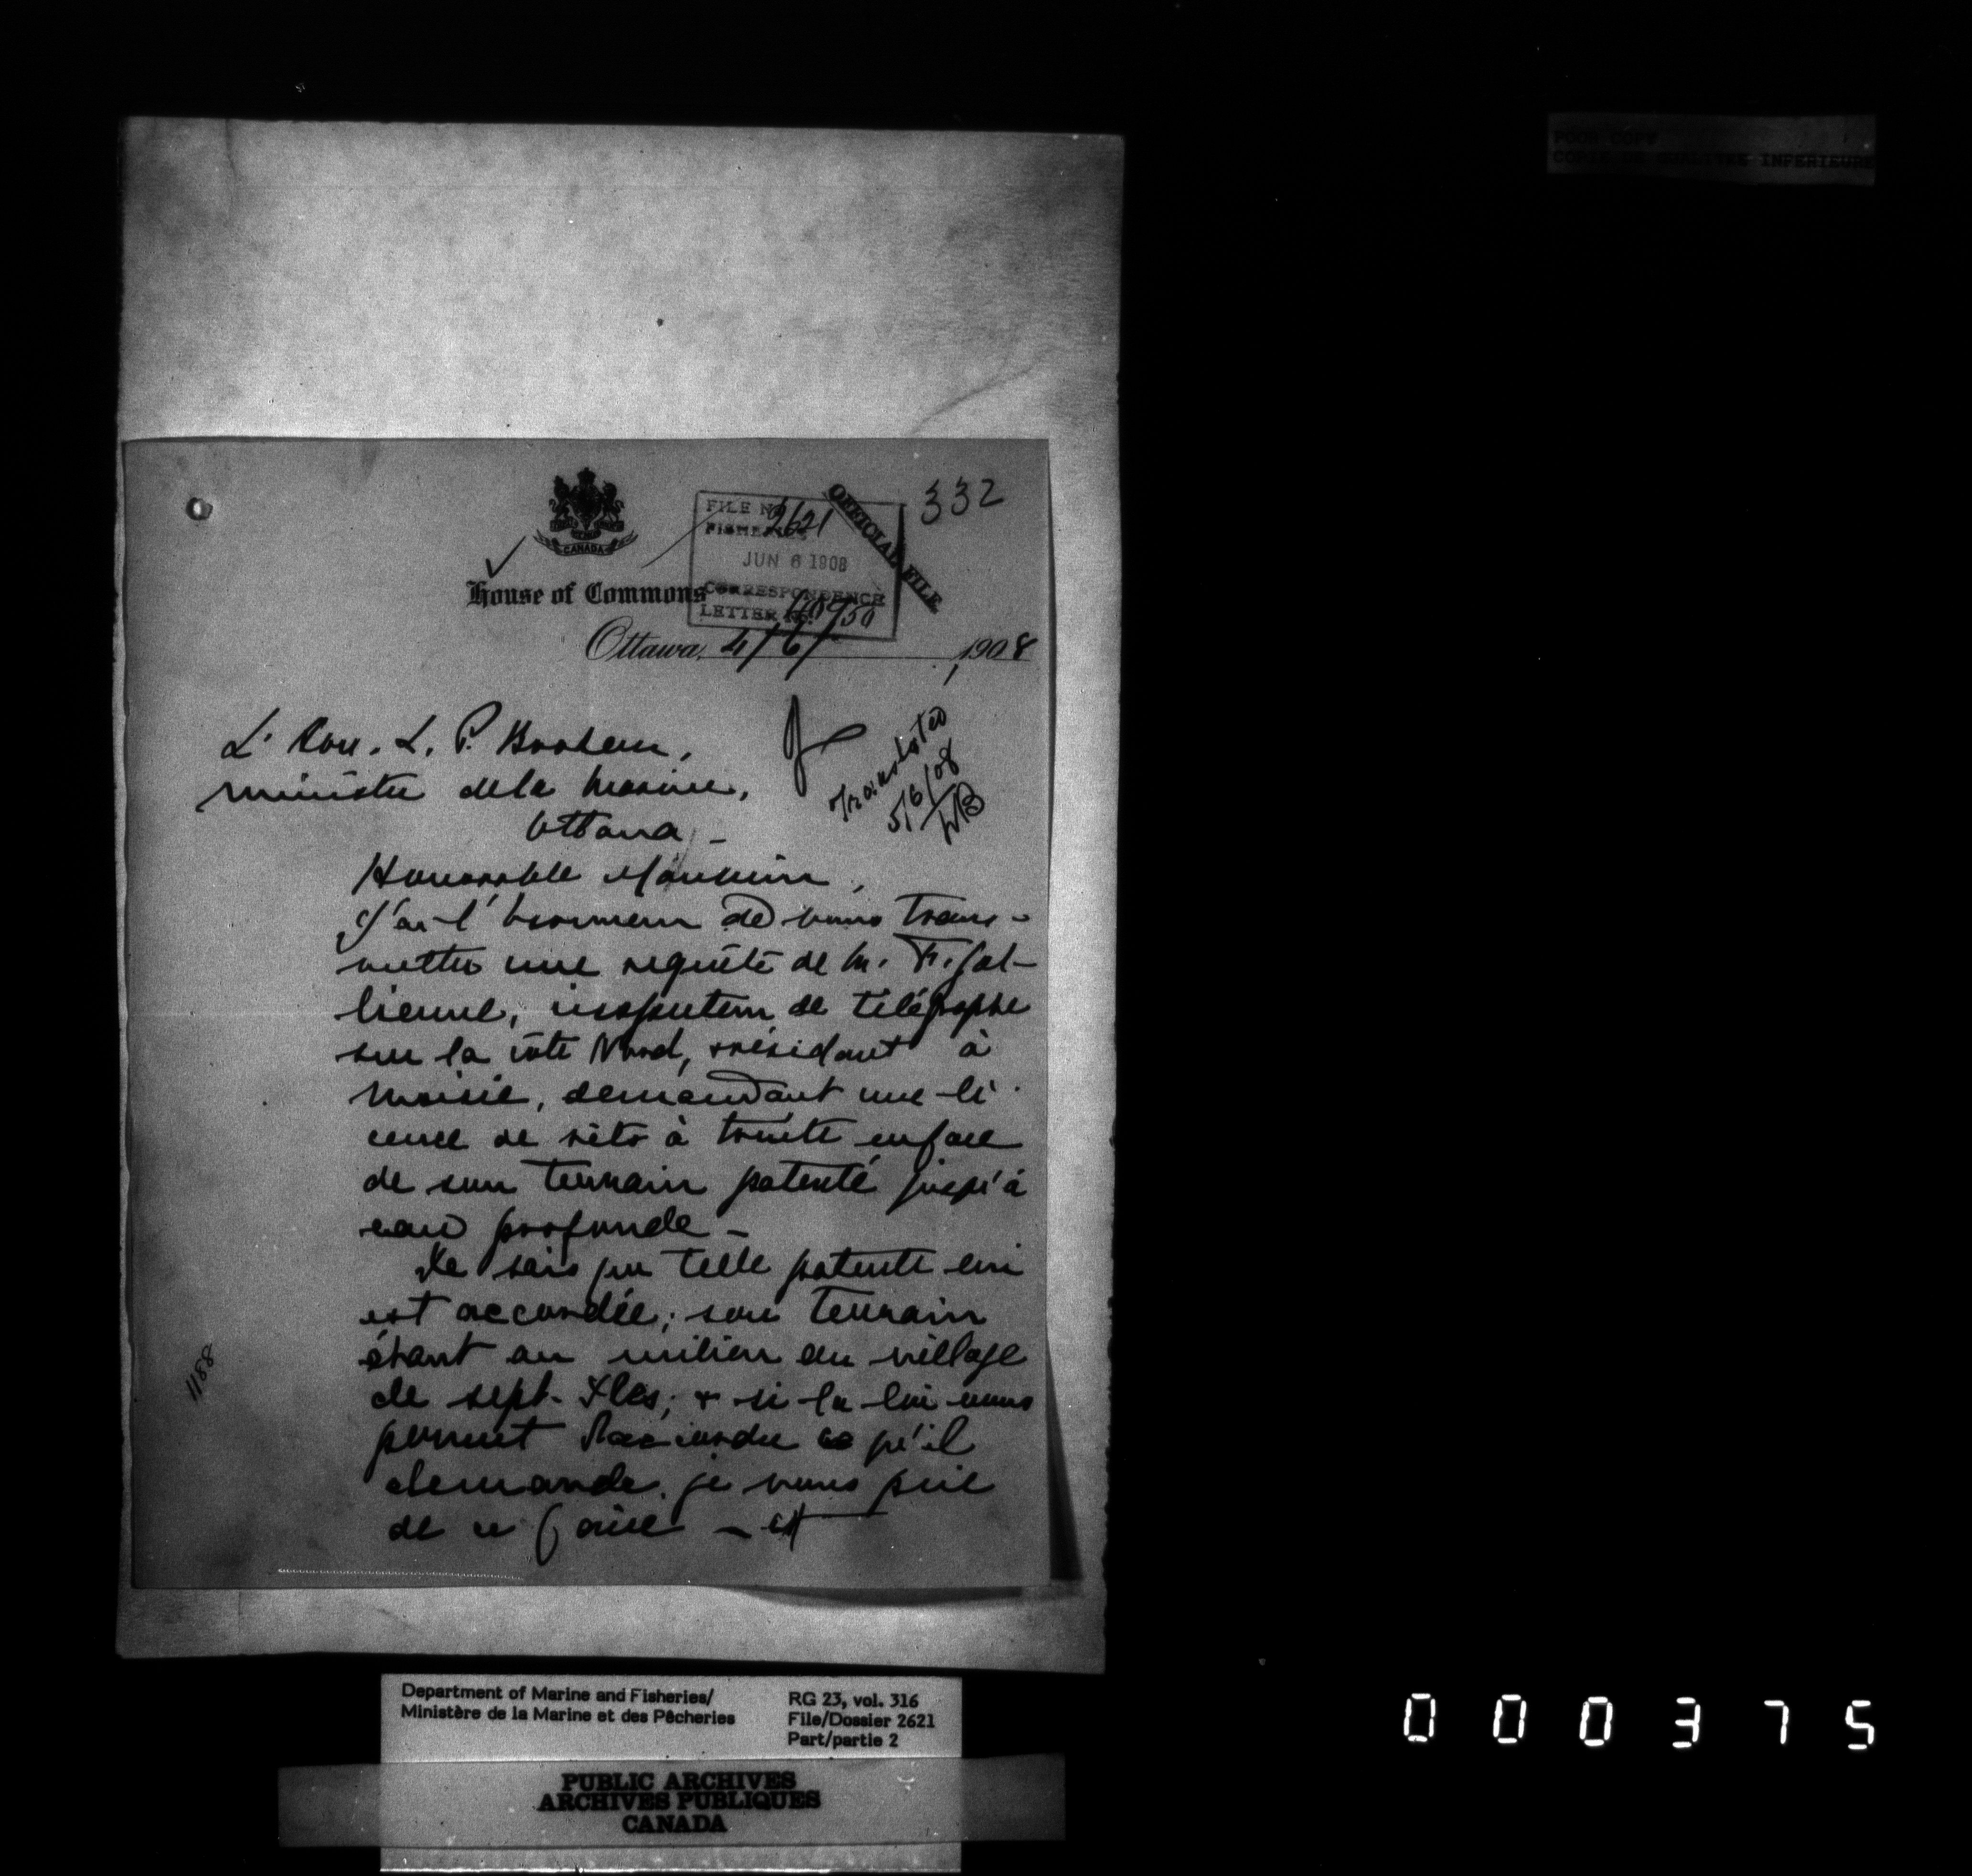 POOR COPY
COPIE DE QUALITEE INFERIEURE
332
CANADA
FILE No 2621
FISHERIES
JUN 6 1908
CORRESPONDENCE
LETTER No.
OFFICIAL FILE
House of Commons
Ottawa, 4/6/ 1908
Translated
5/6/08
L'Hon. L. P. Brodeur,
ministre de la marine,
Ottawa -
Honorable Monsieur,
J'ai l'honneur de vous trans-
mettre une requête de M. F. Gal-
lienne, inspecteur de télégraphe
sur la côte Nord, résidant à
Moisie, demandant une li
cence de rêts à truite en face
de son terrain patenté jusqu'à
eau profonde -
Je sais que telle patente lui
est accordée; son terrain
étant au milieu du village
de Sept-Iles; & si la loi vous
permet d'accorder ce qu'il
demande, je vous prie
de ce faire -
1188
Department of Marine and Fisheries/
Ministère de la Marine et des Pêcheries
RG 23, vol. 316
File/Dossier 2621
Part/partie 2
PUBLIC ARCHIVES
ARCHIVES PUBLIQUES
CANADA
000375